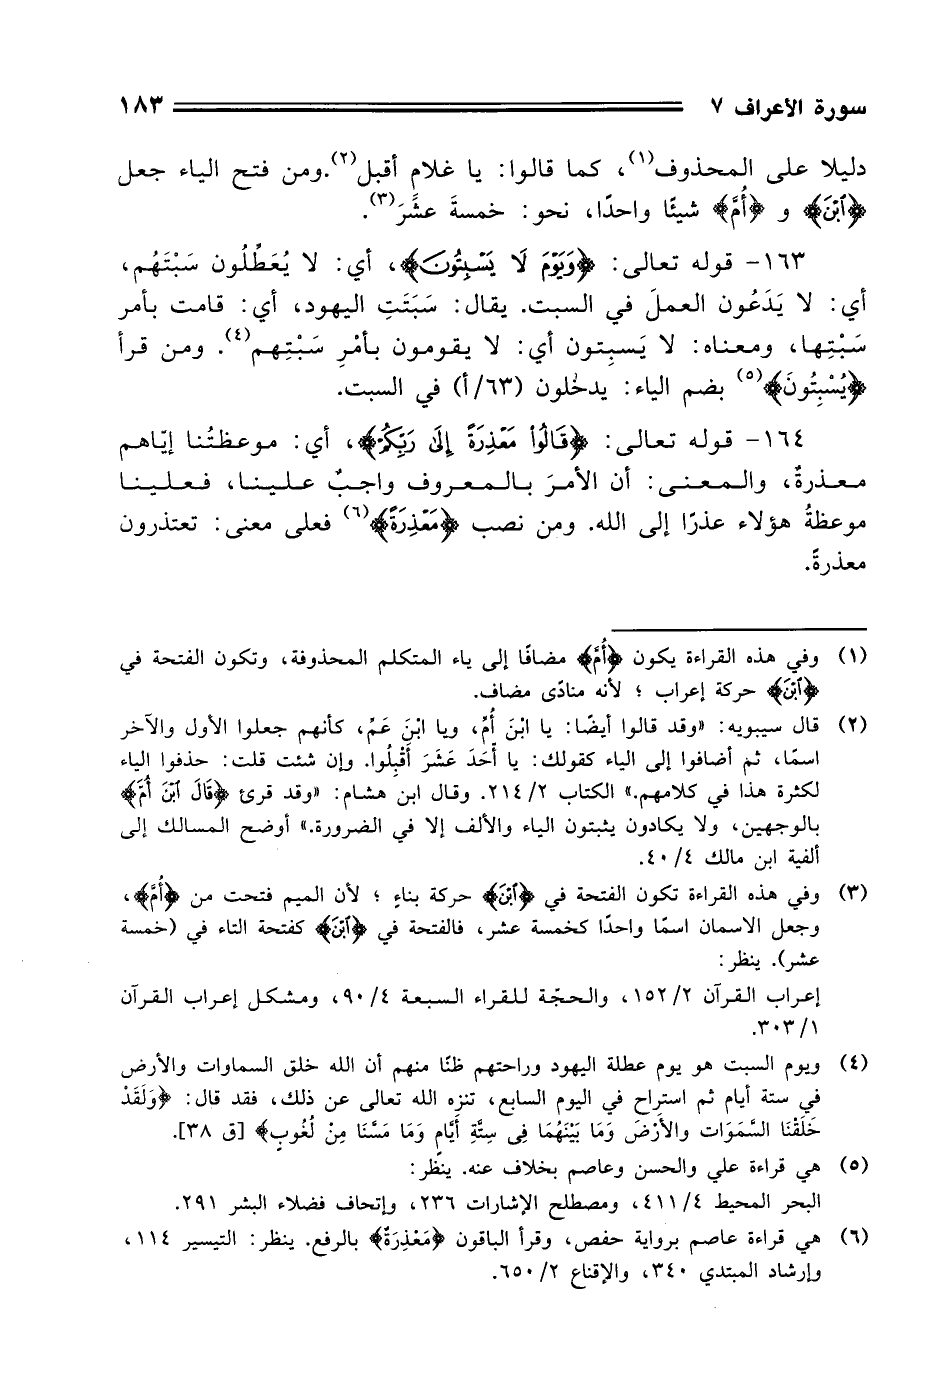 سورة الأعراف ٧ ١٨٣
دليلا على المحذوف(١)، كما قالوا: يا غلام أقبل(٢).ومن فتح الياء جعل
﴿ٱبْنَ﴾ و ﴿أُمَّ﴾ شيئًا واحدًا، نحو: خمسةَ عشَرَ(٣).
١٦٣- قوله تعالى: ﴿وَيَوْمَ لَا يَسْبِتُونَ﴾، أي: لا يُعَطِّلُون سَبْتَهُم،
أي: لا يَدَعُون العملَ في السبت. يقال: سَبَتَتِ اليهود، أي: قامت بأمر
سَبْتِها، ومعناه: لا يَسبِتون أي: لا يقومون بأمْرِ سَبْتِهم(٤). ومن قرأ
﴿يُسْبِتُونَ﴾(٥) بضم الياء: يدخُلون (٦٣/أ) في السبت.
١٦٤- قوله تعالى: ﴿قَالُوا۟ مَعْذِرَةً إِلَىٰ رَبِّكُمْ﴾، أي: موعظتُنا إيّاهم
معذرةٌ، والمعنى: أن الأمرَ بالمعروف واجبٌ علينا، فعلينا
موعظةُ هؤلاء عذرًا إلى الله. ومن نصب ﴿مَعْذِرَةً﴾(٦) فعلى معنى: تعتذرون
معذرةً.
(١) وفي هذه القراءة يكون ﴿أُمَّ﴾ مضافًا إلى ياء المتكلم المحذوفة، وتكون الفتحة في
﴿ٱبْنَ﴾ حركة إعراب ؛ لأنه منادًى مضاف.
(٢) قال سيبويه: «وقد قالوا أيضًا: يا ابْنَ أُمِّ، ويا ابْنَ عَمِّ، كأنهم جعلوا الأول والآخر
اسمًا، ثم أضافوا إلى الياء كقولك: يا أَحَدَ عَشَرَ أَقْبِلُوا. وإن شئت قلت: حذفوا الياء
لكثرة هذا في كلامهم.» الكتاب ٢/ ٢١٤. وقال ابن هشام: «وقد قرئ ﴿قَالَ ٱبْنَ أُمَّ﴾
بالوجهين، ولا يكادون يثبتون الياء والألف إلا في الضرورة.» أوضح المسالك إلى
ألفية ابن مالك ٤/ ٤٠.
(٣) وفي هذه القراءة تكون الفتحة في ﴿ٱبْنَ﴾ حركة بناءٍ ؛ لأن الميم فتحت من ﴿أُمَّ﴾،
وجعل الاسمان اسمًا واحدًا كخمسة عشر، فالفتحة في ﴿ٱبْنَ﴾ كفتحة التاء في (خمسة
عشر). ينظر:
إعراب القرآن ٢/ ١٥٢، والحجّة للقراء السبعة ٤/ ٩٠، ومشكل إعراب القرآن
١/ ٣٠٣.
(٤) ويوم السبت هو يوم عطلة اليهود وراحتهم ظنًا منهم أن الله خلق السماوات والأرض
في ستة أيام ثم استراح في اليوم السابع، تنزه الله تعالى عن ذلك، فقد قال: ﴿وَلَقَدْ
خَلَقْنَا السَّمَوَات والأَرْضَ وَمَا بَيْنَهُمَا فِى سِتَّةِ أَيَّامٍ وَمَا مَسَّنَا مِنْ لُغُوبٍ﴾ [ق ٣٨].
(٥) هي قراءة علي والحسن وعاصم بخلاف عنه. ينظر:
البحر المحيط ٤/ ٤١١، ومصطلح الإشارات ٢٣٦، وإتحاف فضلاء البشر ٢٩١.
(٦) هي قراءة عاصم برواية حفص، وقرأ الباقون ﴿مَعْذِرَةٌ﴾ بالرفع. ينظر: التيسير ١١٤،
وإرشاد المبتدي ٣٤٠، والإقناع ٢/ ٦٥٠.